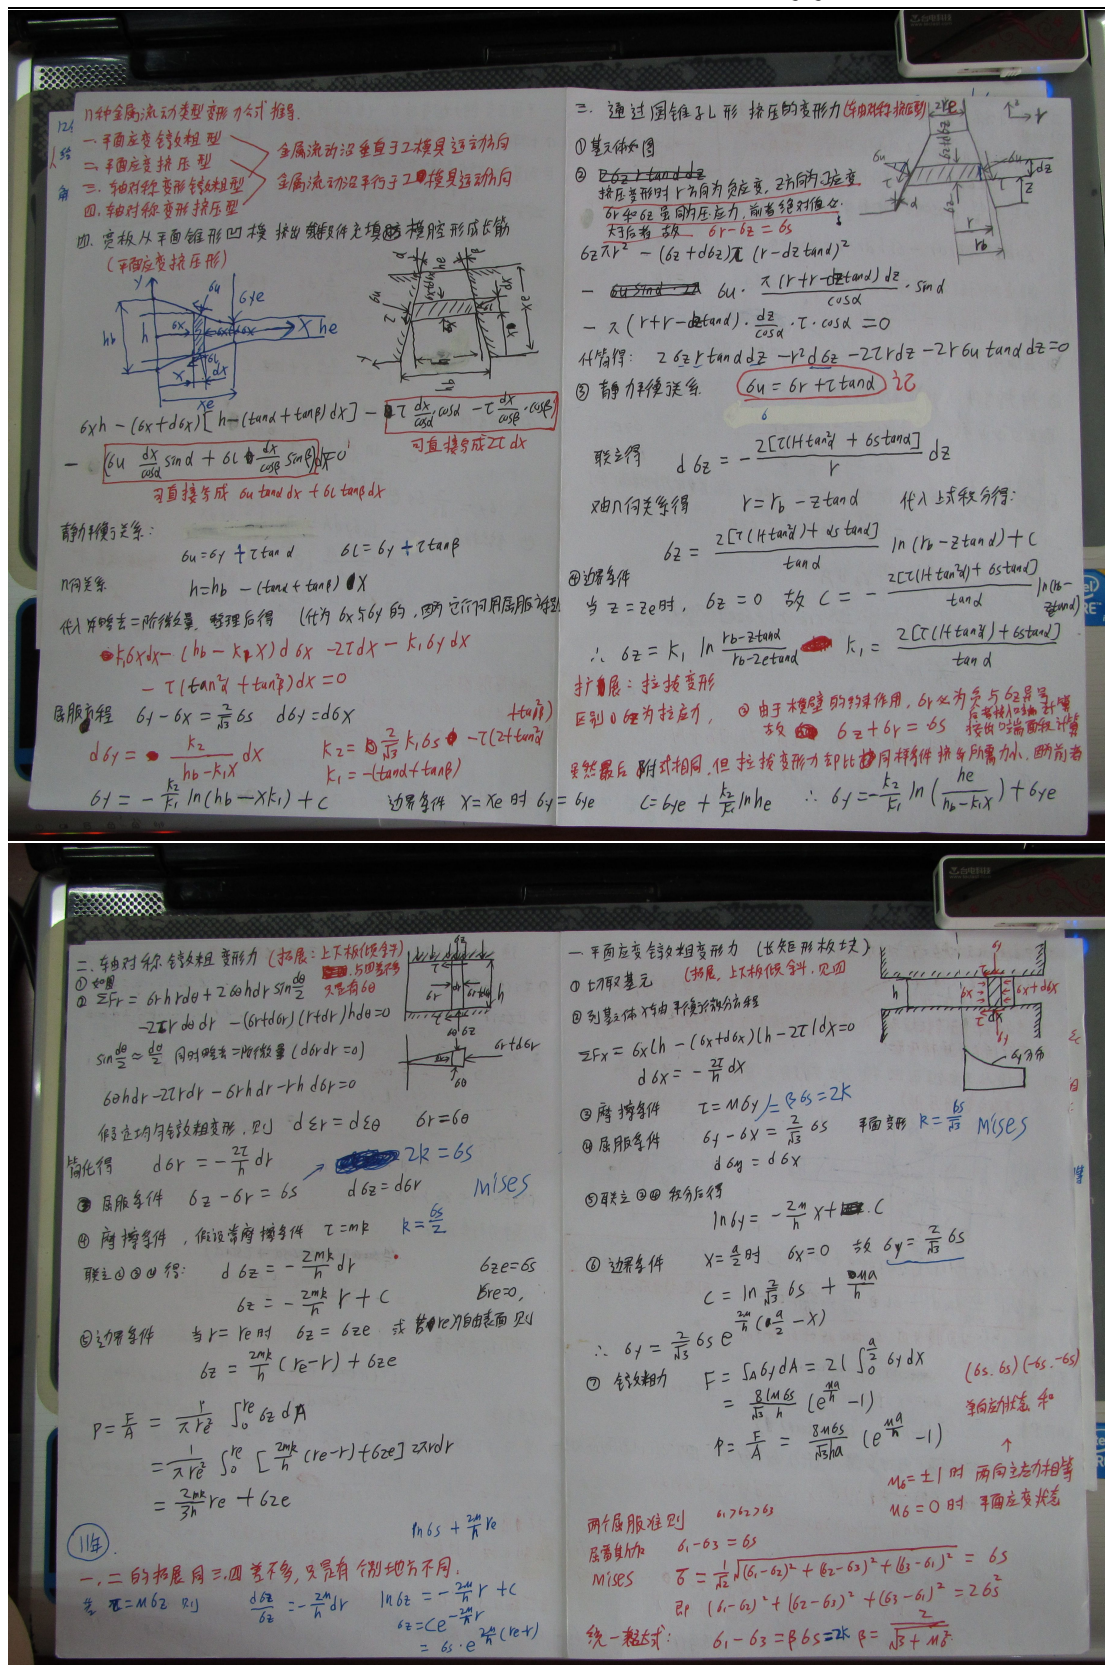 几种金属流动类型变形力公式推导.
一.平面应变镦粗型
二.平面应变挤压型
三.轴对称变形镦粗型
四.轴对称变形挤压型
金属流动沿垂直于工模具运动方向
金属流动沿平行于工模具运动方向
四.宽板从平面锥形凹模挤出或软件充填模腔形成长筋
(平面应变挤压形)
бxh-(бx+dбx)[h-(tanα+tanβ)dx]-τ dx/cosα·cosα-τ dx/cosβ·cosβ)
可直接写成2τdx
-(бu dx/cosα sinα+бl dx/cosβ sinβ)=0
可直接写成 бu tanα dx+бl tanβ dx
静力平衡关系:
бu=бy+τtanα бl=бy+τtanβ
几何关系 h=hb-(tanα+tanβ)x
代入并略去二阶微量,整理后得
k₁бxdx-(hb-k₁x)dбx-2τdx-k₁бydx
-τ(tan²α+tan²β)dx=0
屈服方程 бy-бx=2/√3 бs dбy=dбx
dбy= k₂/(hb-k₁x) dx k₂=2/√3 k₁бs-τ(2+tan²α+tan²β)
k₁=-(tanα+tanβ)
бy=-k₂/k₁ ln(hb-xk₁)+c 边界条件 x=xe时 бy=бye c=бye+k₂/k₁ lnhe ∴ бy=-k₂/k₁ ln(he/(hb-k₁x))+бye
三.通过圆锥孔形挤压的变形力(轴对称挤压型)
①基元体如图
②
挤压变形时r方向为负应变,z方向为正应变
бr和бz虽同为压应力,前者绝对值必
大于后者 故 бr-бz=бs
бzπr²-(бz+dбz)π(r-dztanα)²
-бu·π(r+r-dztanα)dz/cosα·sinα
-π(r+r-dztanα)·dz/cosα·τ·cosα=0
化简得: 2бzrtanαdz-r²dбz-2τrdz-2rбutanαdz=0
③静力平衡关系 бu=бr+τtanα 记
联立得 dбz=-2[τ(1+tan²α+бstanα]/r dz
又由几何关系得 r=rb-ztanα 代入上式积分得:
бz=2[τ(1+tan²α)+бstanα]/tanα ln(rb-ztanα)+c
④边界条件
当z=ze时, бz=0 故 c=-2[τ(1+tan²α)+бstanα]/tanα ln(rb-ztanα)
∴ бz=k₁ ln (rb-ztanα)/(rb-zetanα) k₁=2[τ(1+tan²α)+бstanα]/tanα
扩展:拉拔变形
区别①бz为拉应力, ②由于模壁的约束作用,бr必为负与бz异号
故 бz+бr=бs
虽然最后附式相同,但拉拔变形力却比同样条件挤出所需力小,因前者
二.轴对称镦粗变形力(拓展:上下板倾斜)
与四差不多
只是有бθ
①如图
②ΣFr=бrhrdθ+2бθhdr sin dθ/2
-2τrdθdr-(бr+dбr)(r+dr)hdθ=0
sin dθ/2≈dθ/2 同时略去二阶微量(dбrdr=0)
бθhdr-2τrdr-бrhdr-rhdбr=0
假定均匀镦粗变形,则 dεr=dεθ бr=бθ
简化得 dбr=-2τ/h dr
2k=бs
③屈服条件 бz-бr=бs dбz=dбr Mises
④摩擦条件,假设常摩擦条件 τ=mk k=бs/2
联立②③④得: dбz=-2mk/h dr бze=бs
бz=-2mk/h r+c бre=0,
⑤边界条件 当r=re时 бz=бze 或若re为自由表面则
бz=2mk/h(re-r)+бze
P=F/A=1/πre² ∫₀^re бzdA
=1/πre² ∫₀^re [2mk/h(re-r)+бze]2πrdr
=2mk/3h re+бze
lnбs+2μ/h re
11年.
一,二的拓展同三.四差不多,只是有个别地方不同.
若τ=μбz则 dбz/бz=-2μ/h dr lnбz=-2μ/h r+c
бz=ce^(-2μ/h r)
=бs·e^(2μ/h(re-r))
一.平面应变镦粗变形力(长矩形板块)
(拓展,上下板倾斜,见四
①切取基元
②列基立体X轴平衡求微分方程
ΣFx=бx(h-(бx+dбx)(h-2τldx=0
dбx=-2τ/h dx
③摩擦条件 τ=μбy
=βбs=2k
④屈服条件 бy-бx=2/√3 бs 平面变形 k=бs/√3 Mises
dбy=dбx
⑤联立②③④积分后得
lnбy=-2μ/h x+c
⑥边界条件 x=a/2时 бx=0 故 бy=2/√3 бs
c=ln 2/√3 бs+μa/h
∴ бy=2/√3 бs e^(2μ/h(a/2-x))
⑦镦粗力 F=∫AбydA=2l∫₀^(a/2) бydx
=8lμбs/√3h (e^(μa/h)-1)
p=F/A=8μбs/√3ha (e^(μa/h)-1)
(бs.бs)(-бs.-бs)
单向应力状态和
↑
μб=±1时 两向主应力相等
μб=0时 平面应变状态
两个屈服准则 б₁>б₂>б₃
屈雷斯加 б₁-б₃=бs
Mises б̄=1/√2 √((б₁-б₂)²+(б₂-б₃)²+(б₃-б₁)²=бs
即 (б₁-б₂)²+(б₂-б₃)²+(б₃-б₁)²=2бs²
统一表达式: б₁-б₃=ββs=2k β=2/√(3+μб²)